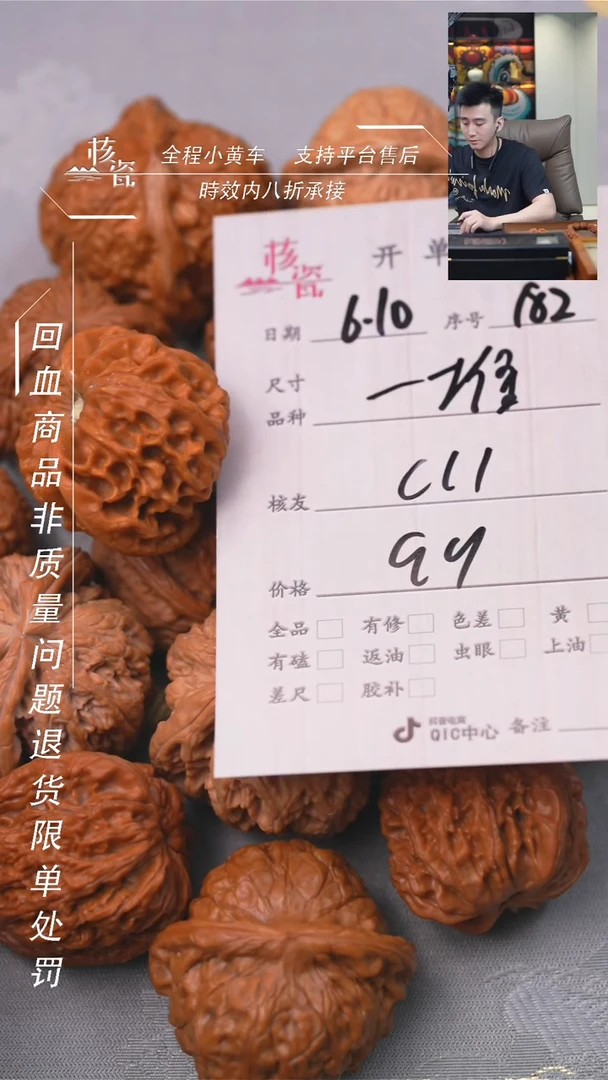 核瓷
全程小黄车 支持平台售后
時效内八折承接
回血商品非质量问题退货限单处罚
核瓷
开单
日期 6-10 序号 182
尺寸
品种 一堆
核友 C11
价格
全品 有修 色差 黄
有磕 返油 虫眼 上油
差尺 胶补
抖音电商
QIC中心 备注